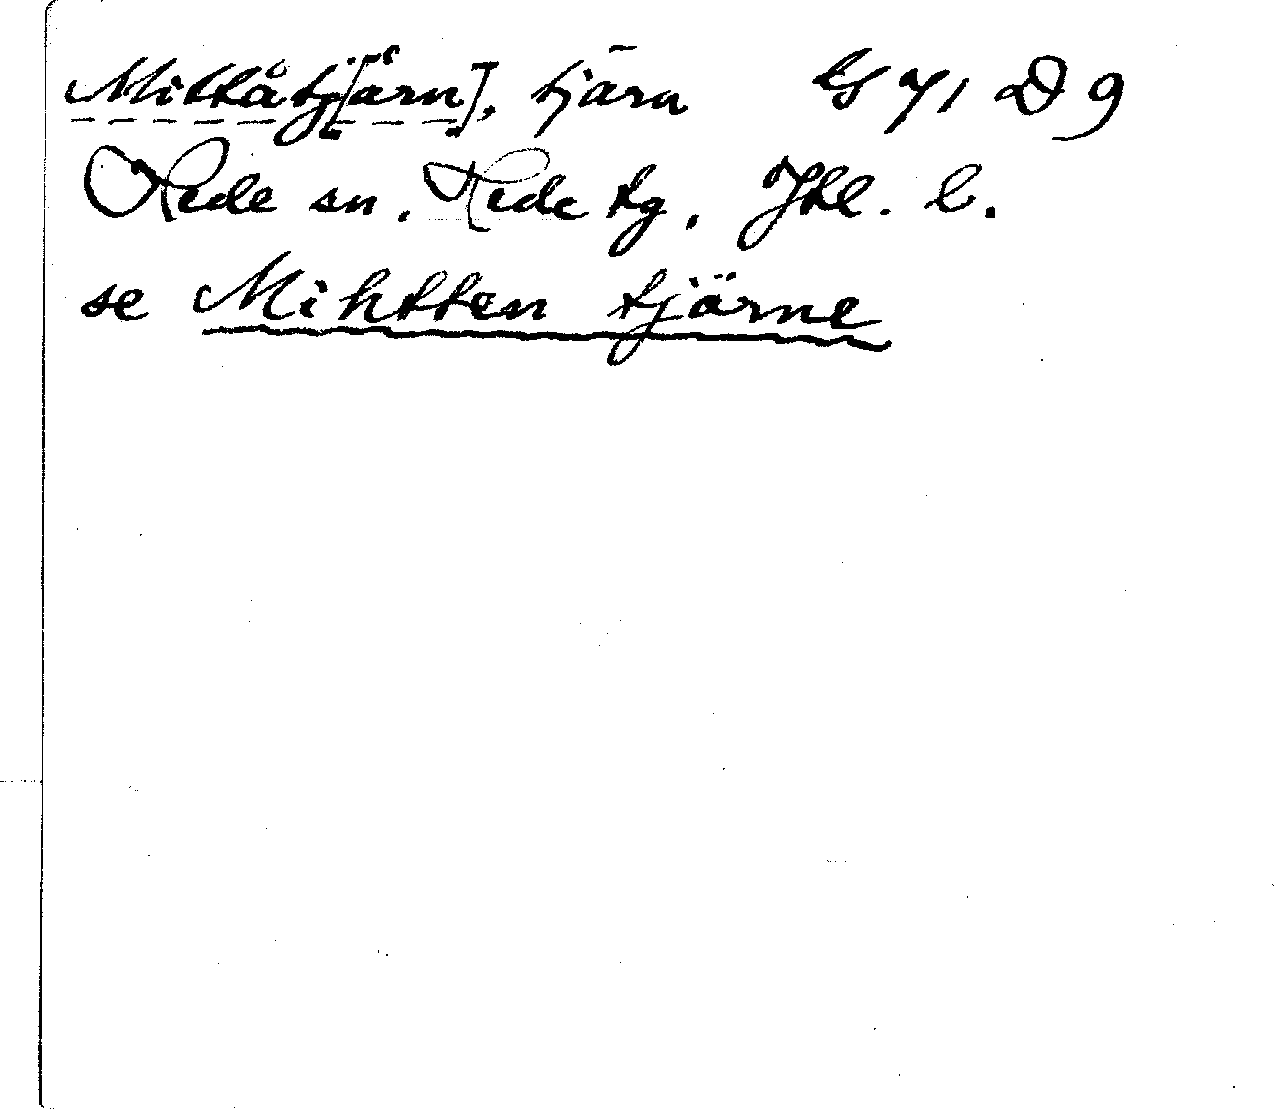 Mittåtj[ärn], tjärn GS 71 D 9
Hede sn. Hede tg. Jtl. l.
se Mihtten tjärne